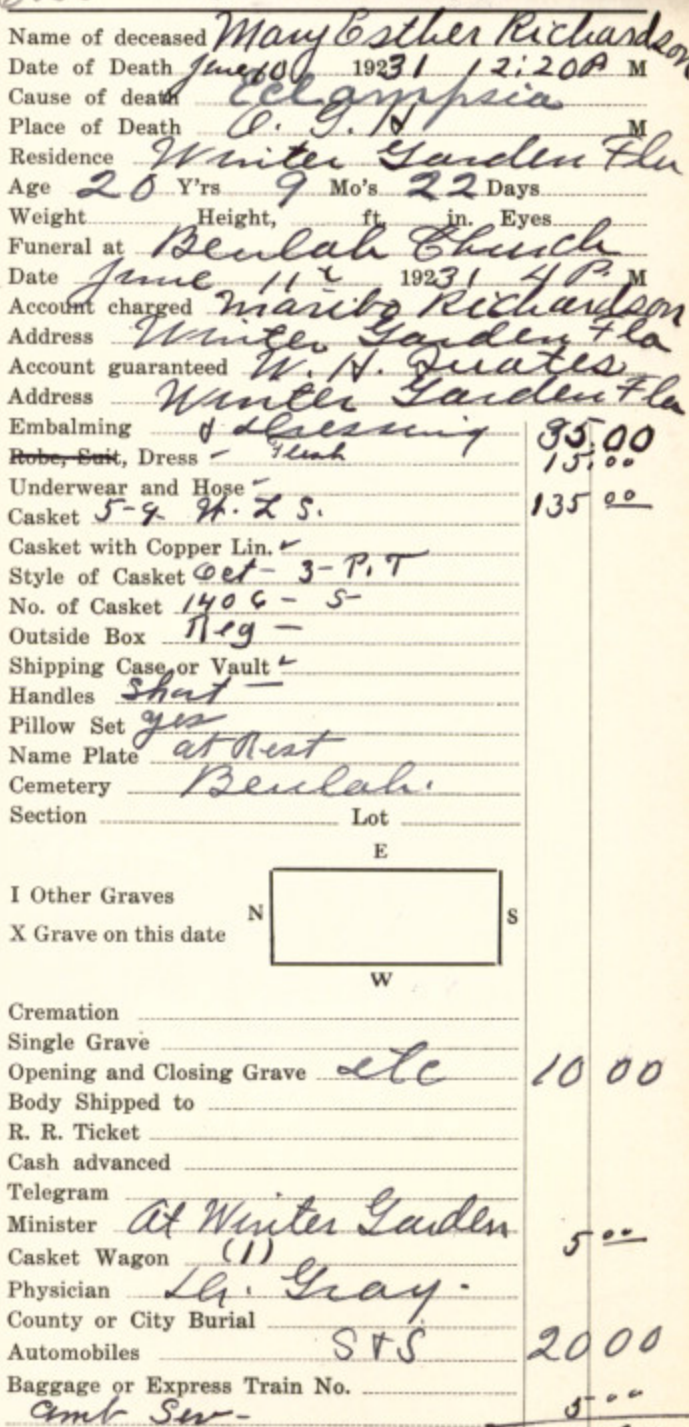 Name of deceased Mary Esther Richardson
Date of Death June 10 19231 12:20 P M
Cause of death Eclampsia
Place of Death O. G. H M
Residence Winter Garden Fla
Age 20 Y'rs 9 Mo's 22 Days
Weight Height, ft. in. Eyes
Funeral at Beulah Church
Date June 11 19231 4 P. M
Account charged Richardson
Address Winter Garden Fla
Account guaranteed W. H.
Address Winter Garden Fla
Embalming & Dressing 35.00
Robe, Suit, Dress - Flesh 15.00
Underwear and Hose -
Casket 5-9 L S. 135 00
Casket with Copper Lin.
Style of Casket Oct - 3 - P. T
No. of Casket 1406 - S
Outside Box Reg -
Shipping Case or Vault
Handles Short -
Pillow Set yes
Name Plate at Rest
Cemetery Beulah.
Section Lot
E
I Other Graves
N S
X Grave on this date
W
Cremation
Single Grave
Opening and Closing Grave etc 10 00
Body Shipped to
R. R. Ticket
Cash advanced
Telegram
Minister At Winter Garden
Casket Wagon (1) 5 00
Physician Dr. Gray.
County or City Burial
Automobiles S & S 20 00
Baggage or Express Train No.
Amb Ser - 5 00